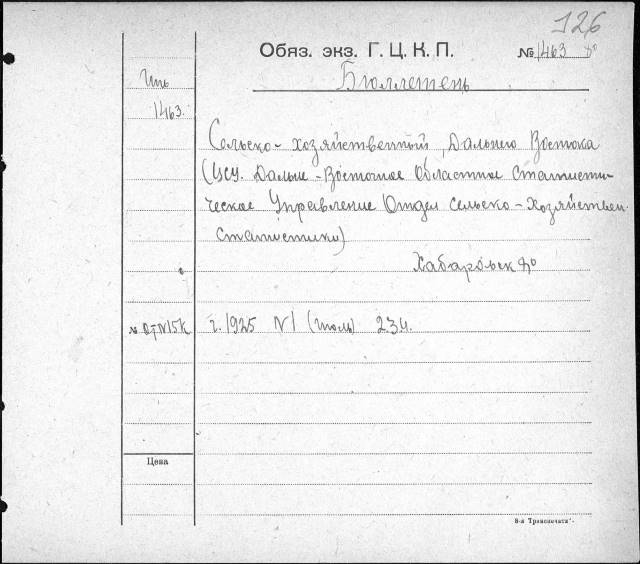 126
Обяз. экз. Г. Ц. К. П. № 1463
Бюллетень
1463.
Сельско-хозяйственный Дальнего Востока
(ЦСУ. Дальне-Восточное Областное Статисти-
ческое Управление Отдел Сельско-Хозяйствен.
статистики)
Хабаровск
г. 1925 N1 (июль)
Цена
8-я Транспечати".